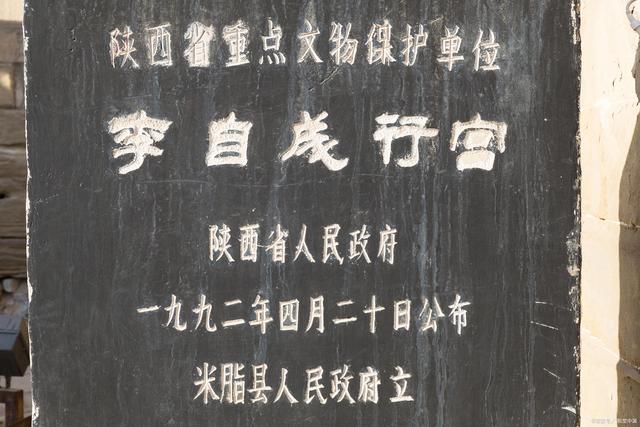 陕西省重点文物保护单位
李自成行宫
陕西省人民政府
一九九二年四月二十日公布
米脂县人民政府立